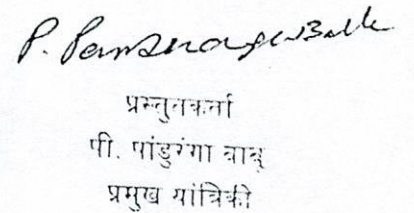 P. Panduranga Babu
प्रस्तुतकर्ता
पी. पांडुरंगा बाबू
प्रमुख यांत्रिकी